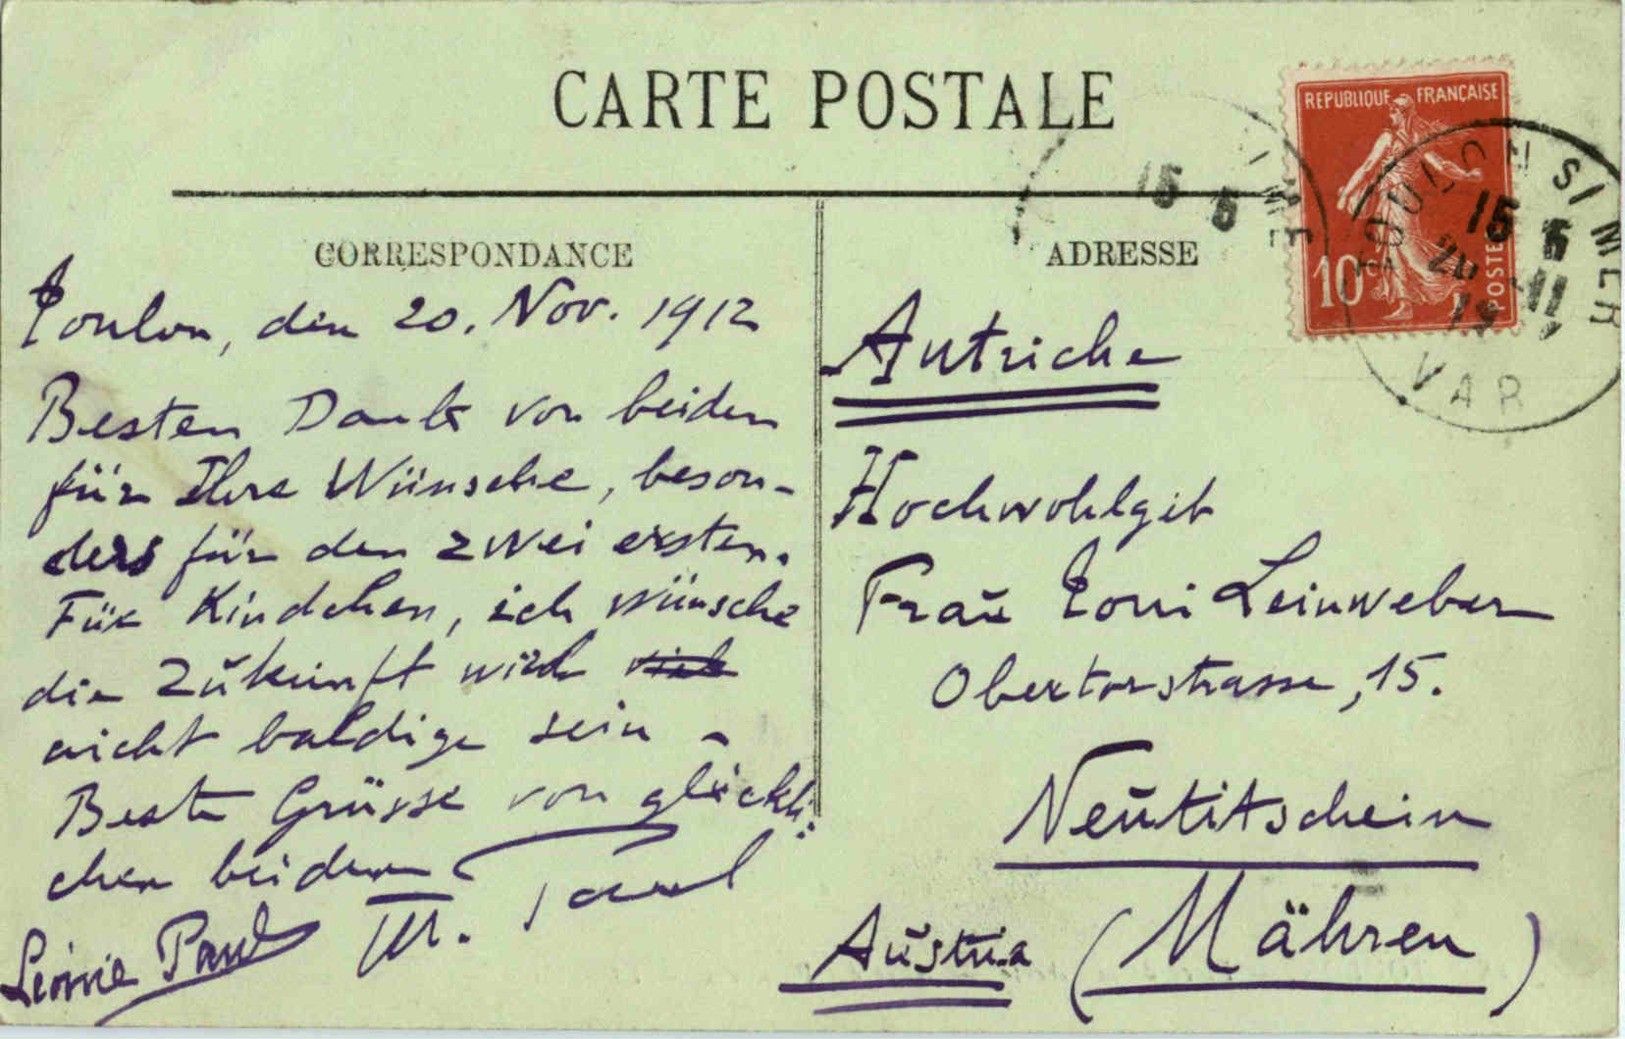 CARTE POSTALE
CORRESPONDANCE
Toulon, den 20. Nov. 1912
Besten Dank von beiden
für Ihre Wünsche, beson-
ders für den zwei ersten.
Für Kindchen, ich wünsche
die Zukunft wird
nicht baldige sein -
Beste Grüsse von glückli-
chen beiden
Léonie Paul M. Paul
ADRESSE
REPUBLIQUE FRANÇAISE
10
POSTES
TOULON S/ MER
15 5
20 -11
12
VAR
15 5
Autriche
Hochwohlgeb
Frau Toni Leinweber
Obertorstrasse, 15.
Neutitschein
Austria (Mähren)